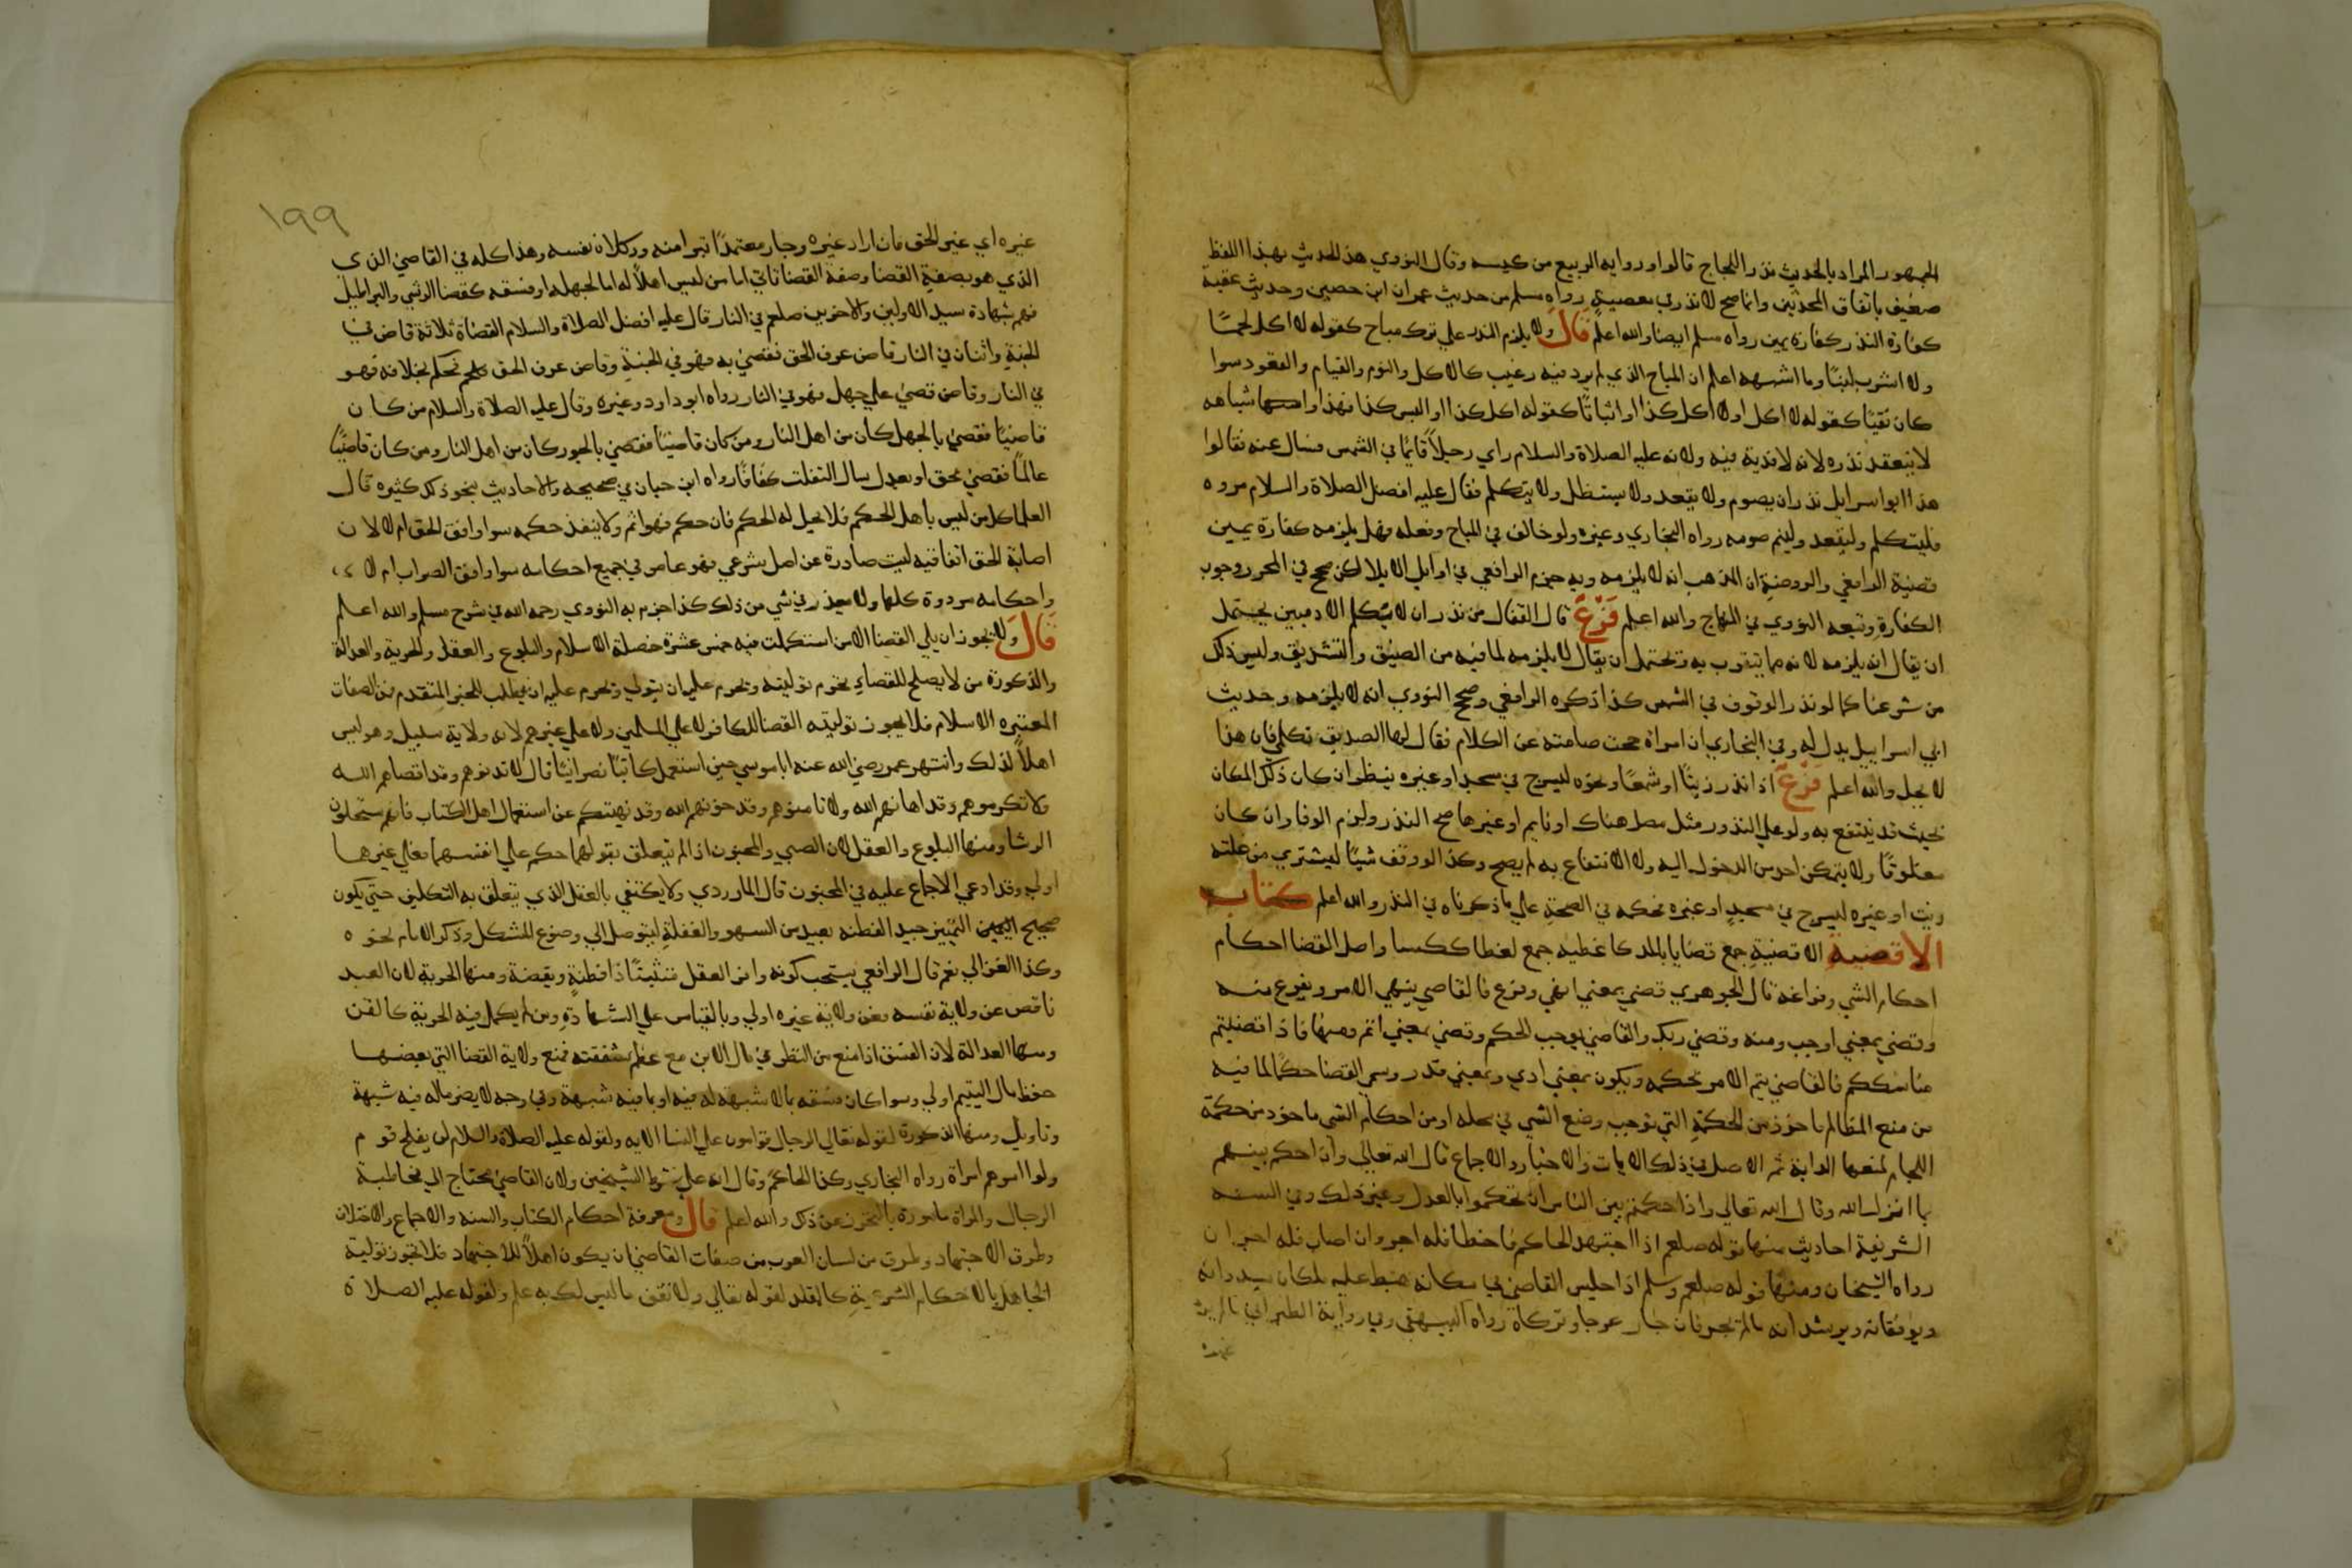 الجمهور المراد بالحديث نذر اللجاج قالوا ورواية الربيع من كيسه وقال النووي هذا الحديث بهذا اللفظ
ضعيف باتفاق المحدثين وانما صح لا نذر في معصية رواه مسلم من حديث عمران ابن حصين وحديث عقبة
كفارة النذر كفارة يمين رواه مسلم ايضا والله اعلم قال ولا يلزم النذر علي ترك مباح كقوله لا اكل لحما
ولا اشرب لبنا وما اشبهه اعلم ان المباح الذي لم يرد فيه رغيب كالاكل والنوم والقيام والقعود سوا
كان نفيا كقوله لا اكل اولا اكل كذا او اثباتا كقوله اكل كذا او البس كذا فهذا واشباهه
لا ينعقد نذره لانه لا قربة فيه ولانه عليه الصلاة والسلام راي رجلا قايما في الشمس فسال عنه فقالوا
هذا ابو اسرايل نذر ان يصوم ولا يقعد ولا يستظل ولا يتكلم فقال عليه افضل الصلاة والسلام مروه
فليتكلم وليقعد وليتم صومه رواه البخاري وغيره ولو خالف في المباح وفعله فهل يلزمه كفارة يمين
قضية الرافعي والروضة ان المذهب انه لا يلزمه وبه جزم الرافعي في اوايل الايلا لكن صحح في المحرر وجوب
الكفارة وتبعه النووي في المنهاج والله اعلم فرع قال القفال من نذر ان لا يتكلم الادميين يحتمل
ان يقال انه يلزمه لانه مما يتقرب به ويحتمل ان يقال لا يلزمه لما فيه من الضيق والتشديق وليس ذلك
من شرعنا كما لو نذر الوقوف في الشمس كذا ذكره الرافعي وصحح النووي انه لا يلزمه وحديث
ابي اسراييل يدل له وفي البخاري ان امراة حجت صامته عن الكلام فقال لها الصديق تكلمي فان هذا
لا يحل والله اعلم فرع اذا نذر زيتا او شمعا ونحوه ليسرج في مسجد او غيره ينظر ان كان ذلك المكان
بحيث قد ينتفع به ولو علي النذور مثل مصل هناك او نايم او غيرها صح النذر ولزم الوفا وان كان
مغلوقا ولا يتمكن احد من الدخول اليه ولا الانتفاع به لم يصح وكذا لو وقف شيا ليشتري من غلته
زيت او غيره ليسرج في مسجد او غيره فحكمه في الصحة علي ما ذكرناه في النذر والله اعلم كتاب
الاقضية الاقضية جمع قضا بالمد كاغطية جمع لغطا ككسا واصل القضا احكام
احكام الشي وفراغه قال الجوهري قضي بمعني انهي وفرغ فالقاضي ينهي الامر ويفرغ منه
وقضي بمعني اوجب ومنه وقضي ربك والقاضي يوجب الحكم وقضي بمعني اتم ومنها فاذا قضيتم
مناسككم فالقاضي يتم الامر بحكمه ويكون بمعني ادي وبمعني قدر وسمي القضا حكما لما فيه
من منع المظالم ماخوذ من الحكمة التي توجب وضع الشي في محله او من احكام الشي ماخوذ من حكمة
اللجام لمنعها الدابة ثم الاصل في ذلك الايات والاخبار والاجماع قال الله تعالي وان احكم بينهم
بما انزل الله وقال الله تعالي واذا حكمتم بين الناس ان تحكموا بالعدل وغير ذلك وفي السنه
الشريفة احاديث منها قوله صلعم اذا اجتهد الحاكم فاخطا فله اجر وان اصاب فله اجران
رواه الشيخان ومنها قوله صلعم وسلم اذا جلس القاضي في مكانه هبط عليه ملكان يسددانه
ويوفقانه ويرشدانه مالم يجر فان جار عرجا وتركاه رواه البيهقي وفي رواية الطبراني مالم يرد
غيره
١٩٩
غيره اي غير الحق فان اراد غيره وجار معتمدا تبرا منه ووكلاه نفسه وهذا كله في القاضي الذي
الذي هو بصفة القضا وصفة القضا تاتي اما من ليس اهلا له اما لجهله او فسقه كقضا الرشي والبراطيل
فهم بشهادة سيد الاولين والاخرين صلعم في النار قال عليه افضل الصلاة والسلام القضاة ثلاثة قاض في
الجنة واثنان في النار قاض عرف الحق فقضي به فهو في الجنة وقاض عرف الحق فحكم بخلافه فهو
في النار وقاض قضي علي جهل فهو في النار رواه ابو داود وغيره وقال عليه الصلاة والسلام من كان
قاضيا فقضي بالجهل كان من اهل النار ومن كان قاضيا فقضي بالجور كان من اهل النار ومن كان قاضيا
عالما فقضي بحق او بعدل سال التفلت كفافا رواه ابن حبان في صحيحه والاحاديث بنحو ذلك كثيره قال
العلما كل من ليس باهل الحكم فلا يحل له الحكم فان حكم فهو اثم ولا ينفذ حكمه سوا وافق الحق ام لا لان
اصابة الحق اتفاقيه ليست صادرة عن اصل شرعي فهو عاص في جميع احكامه سوا وافق الصواب ام لا
واحكامه مردودة كلها ولا يعذر في شي من ذلك كذا جزم به النووي رحمه الله في شرح مسلم والله اعلم
قال ولا يجوز ان يلي القضا الا من استكملت فيه خمس عشرة خصلة الاسلام والبلوغ والعقل والحرية والعدالة
والذكورة من لا يصلح للقضاء يحرم توليته ويحرم عليه ان يتولي ويحرم عليه ان يطلب للخبر المتقدم فمن الصفات
المعتبره الاسلام فلا يجوز توليته القضا للكافر لا علي المسلمين ولا علي غيرهم لانه ولاية سبيل وهو ليس
اهلا لذلك وانتهر عمر رضي الله عنه ابا موسي حين استعمل كاتبا نصرانيا قال لا تدنوهم وقد اقصاهم الله
ولا تكرموهم وقد اهانهم الله ولا تامنوهم وقد خونهم الله وقد نهيتكم عن استعمال اهل الكتاب فانهم يستحلون
الرشا ومنها البلوغ والعقل لان الصبي والمجنون اذا لم يتعلق بقولهما حكم علي انفسهما فعلي غيرهما
اولي وقد ادعي الاجماع عليه في المجنون قال الماوردي ولا يكتفي بالعقل الذي يتعلق به التكليف حتي يكون
صحيح التمييز جيد الفطنه بعيد من السهو والغفلة ليتوصل الي وضوع المشكل وذكر الامام نحوه
وكذا الغزالي نعم قال الرافعي يستحب كونه وافر العقل متثبتا ذا فطنة ويقضة ومنها الحرية لان العبد
ناقص عن ولاية نفسه فعن ولاية غيره اولي وبالقياس علي الشهادة ومن لم يكمل فيه الحرية كالقن
ومنها العدالة لان الفسق اذا منع من النظر في مال الابن مع عظم شفقته فمنع ولاية القضا التي بعضها
حفظ مال اليتيم اولي وسوا كان فسقه بما لا شبهه له فيه او بما فيه شبهة وفي وجه لا يضر ماله فيه شبهة
وتاويل ومنها الذكورة لقوله تعالي الرجال قوامون علي النسا الايه ولقوله عليه الصلاة والسلام لن يفلح قوم
ولوا امرهم امراة رواه البخاري وكذا الحاكم وقال انه علي شرط الشيخين ولان القاضي محتاج الي مخاطبة
الرجال والمراة مامورة بالتحرز عن ذلك والله اعلم قال ومعرفة احكام الكتاب والسنه والاجماع والاختلاف
وطرق الاجتهاد وطرق من لسان العرب من صفات القاضي ان يكون اهلا للاجتهاد فلا يجوز تولية
الجاهل بالاحكام الشرعية كالمقلد لقوله تعالي ولا تقف ما ليس لك به علم ولقوله عليه الصلاة